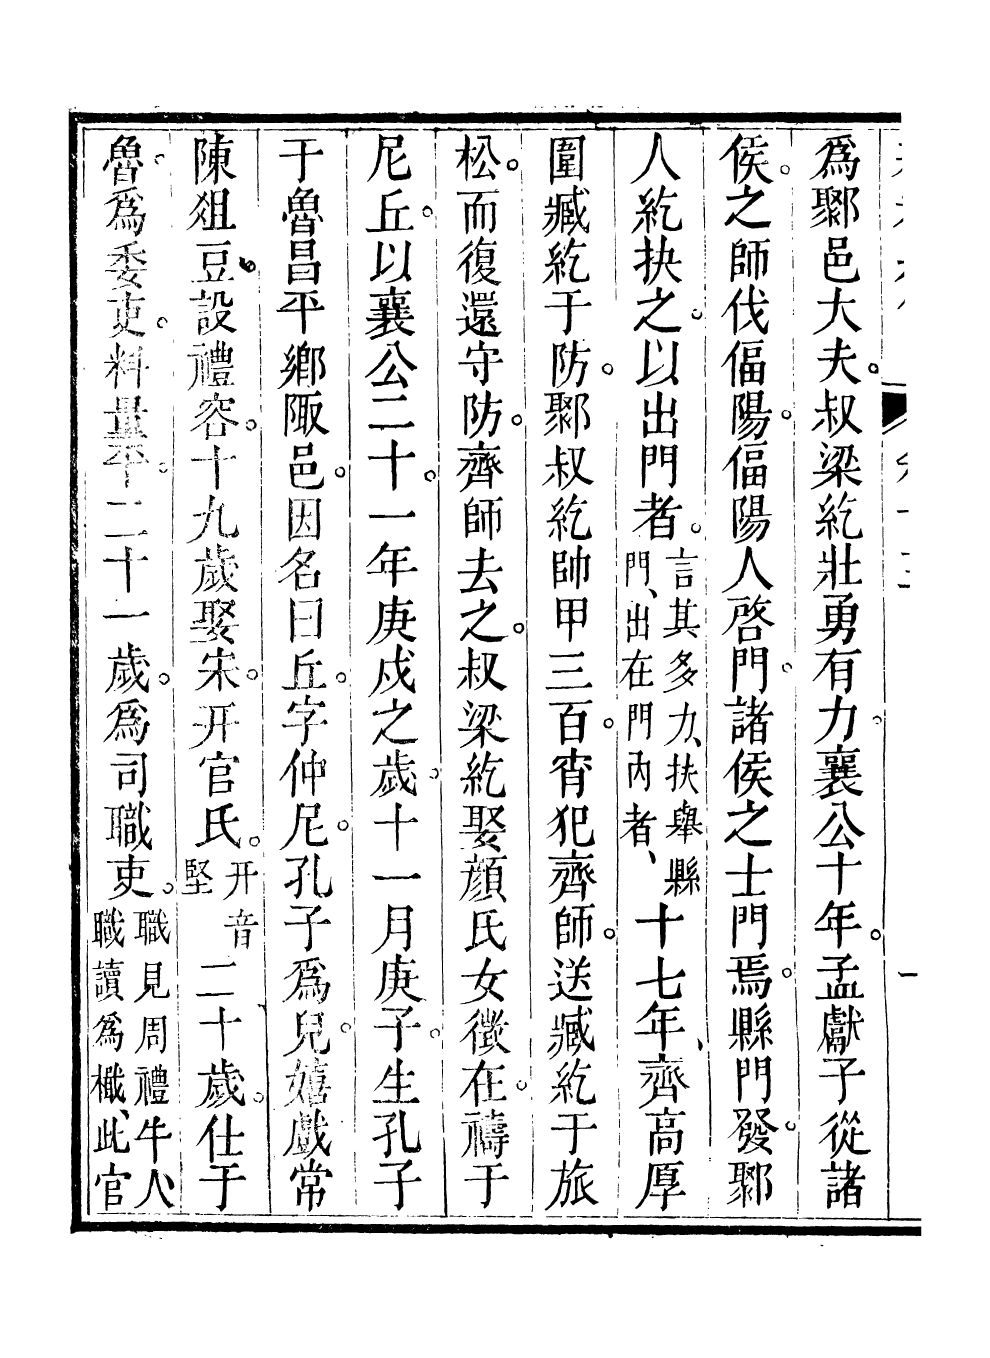 爲鄹邑大夫。叔梁紇壯勇有力。襄公十年。孟獻子從諸
侯。之師伐偪陽。偪陽人啓門。諸侯之士門焉。縣門發。鄹
人紇抉之。以出門者。言其多力、抉舉縣門、出在門內者、十七年、齊高厚
圍臧紇于防。鄹叔紇帥甲三百。宵犯齊師。送臧紇于旅
松。而復還守防。齊師去之。叔梁紇娶顏氏女徵在。禱于
尼丘。以襄公二十。一年庚戌之歲。十一月庚子。生孔子
于魯昌平鄉陬邑。因名曰丘。字仲尼。孔子爲兒。嬉戲常
陳俎豆。設禮容。十九歲娶宋。幵官氏。幵音堅二十歲。仕于
魯。爲委吏。料量平。二十一歲。爲司職吏。職見周禮牛人職讀爲樴、此官